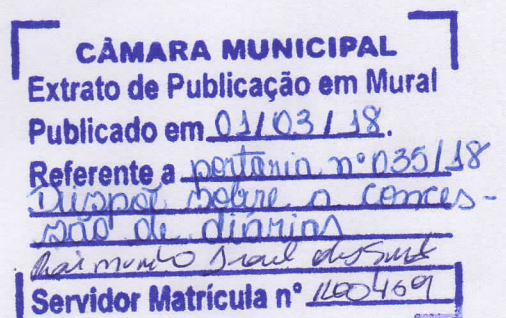 CÂMARA MUNICIPAL
Extrato de Publicação em Mural
Publicado em 01/03/18.
Referente a portaria nº 035/18
Dispoe sobre a conces-
são de diárias
Raimundo
Servidor Matrícula nº